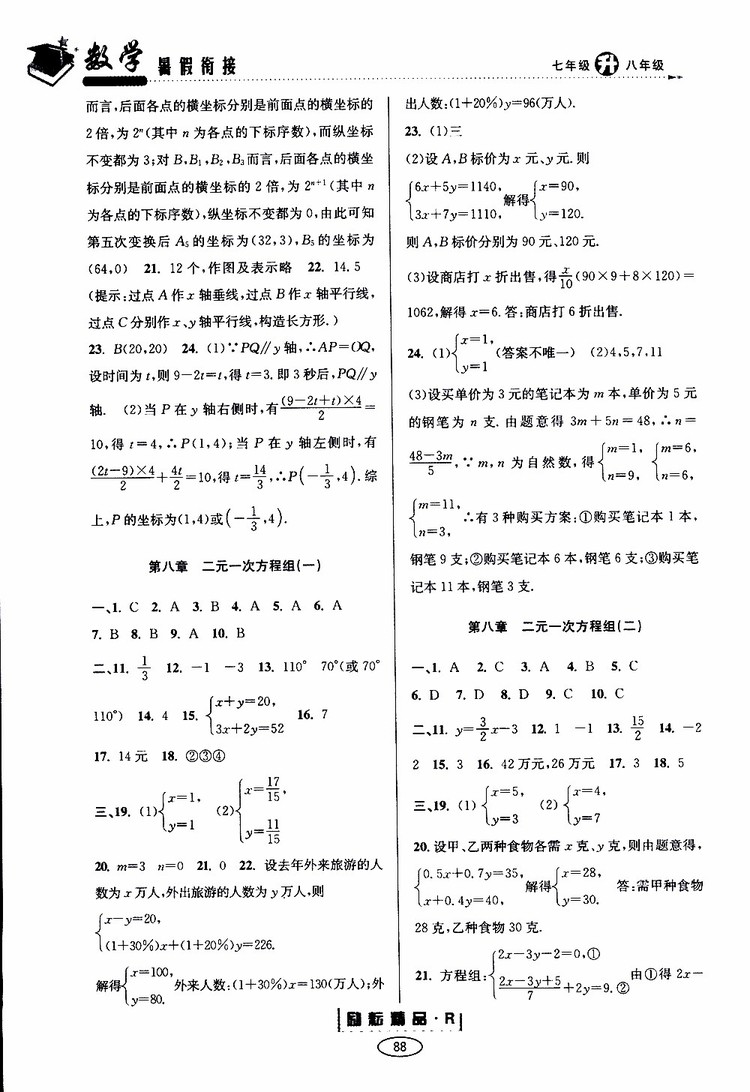 数学 暑假衔接
七年级 升 八年级
而言,后面各点的横坐标分别是前面点的横坐标的
2倍,为2ⁿ(其中 n 为各点的下标序数),而纵坐标
不变都为3;对 B,B₁,B₂,B₃而言,后面各点的横坐
标分别是前面点的横坐标的 2 倍,为 2ⁿ⁺¹(其中 n
为各点的下标序数),纵坐标不变都为0,由此可知
第五次变换后 A₅ 的坐标为(32,3),B₅的坐标为
(64,0) 21. 12个,作图及表示略 22. 14.5
(提示:过点A作x轴垂线,过点B作x轴平行线,
过点C分别作x、y轴平行线,构造长方形.)
23. B(20,20) 24. (1)∵PQ∥y轴,∴AP=OQ,
设时间为t,则9-2t=t,得t=3.即3秒后,PQ∥y
轴. (2)当P在y轴右侧时,有(9-2t+t)×4/2=
10,得t=4,∴P(1,4);当P在y轴左侧时,有
(2t-9)×4/2+4t/2=10,得t=14/3,∴P(-1/3,4).综
上,P的坐标为(1,4)或(-1/3,4).
第八章 二元一次方程组(一)
一、1. C 2. A 3. B 4. A 5. A 6. A
7. B 8. B 9. A 10. B
二、11. 1/3 12. -1 -3 13. 110° 70°(或70°
110°) 14. 4 15. {x+y=20, 3x+2y=52 16. 7
17. 14元 18. ②③④
三、19. (1){x=1, y=1 (2){x=17/15, y=11/15
20. m=3 n=0 21. 0 22. 设去年外来旅游的人
数为x万人,外出旅游的人数为y万人,则
{x-y=20,
(1+30%)x+(1+20%)y=226.
解得{x=100, y=80. 外来人数:(1+30%)x=130(万人);外
出人数:(1+20%)y=96(万人).
23. (1)三
(2)设A,B标价为x元、y元.则
{6x+5y=1140, 3x+7y=1110, 解得{x=90, y=120.
则A,B标价分别为90元、120元.
(3)设商店打x折出售,得x/10(90×9+8×120)=
1062,解得x=6.答:商店打6折出售.
24. (1){x=1, y=1 (答案不唯一) (2)4,5,7,11
(3)设买单价为3元的笔记本为m本,单价为5元
的钢笔为n支.由题意得3m+5n=48,∴n=
48-3m/5,∵m,n为自然数,得{m=1, n=9, {m=6, n=6,
{m=11, n=3, ∴有3种购买方案:①购买笔记本1本,
钢笔9支;②购买笔记本6本,钢笔6支;③购买笔
记本11本,钢笔3支.
第八章 二元一次方程组(二)
一、1. A 2. C 3. A 4. B 5. C
6. D 7. D 8. D 9. C 10. C
二、11. y=3/2x-3 12. 1 -1 13. 15/2 14. -2
2 15. 3 16. 42万元,26万元 17. 3 18. 5
三、19. (1){x=5, y=3 (2){x=4, y=7
20. 设甲、乙两种食物各需x克、y克,则由题意得,
{0.5x+0.7y=35, x+0.4y=40, 解得{x=28, y=30. 答:需甲种食物
28克,乙种食物30克.
21. 方程组:{2x-3y-2=0,① 2x-3y+5/7+2y=9.② 由①得2x-
励耘精品·R
88